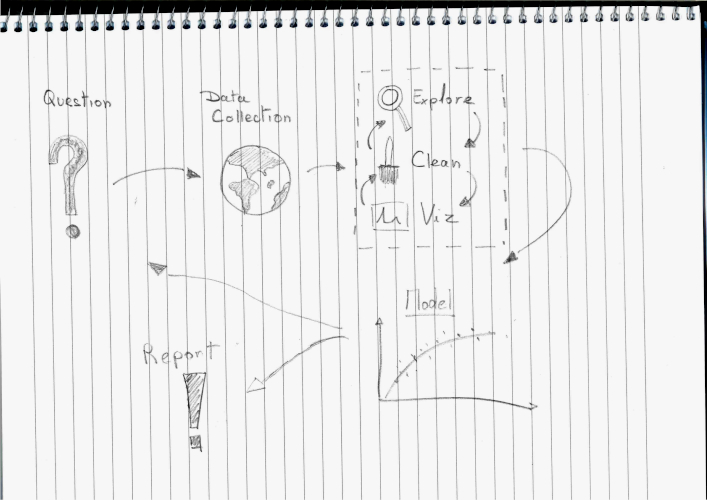 Question
Data
Collection
Explore
Clean
Viz
Model
Report